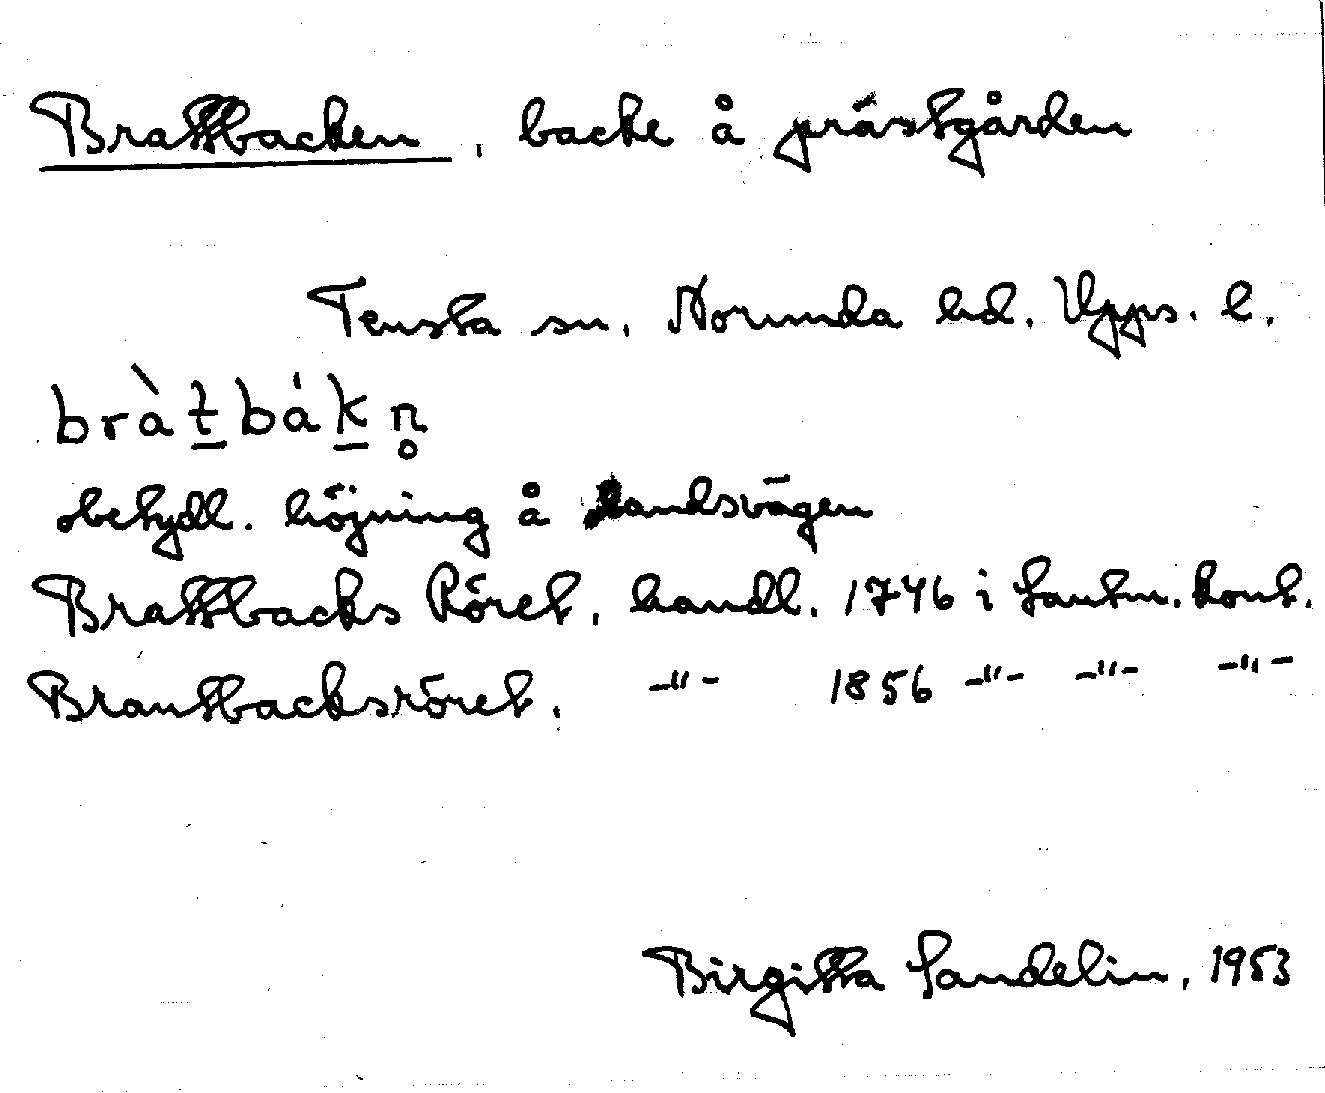 Brattbacken, backe å prästgården
Tensta sn. Norunda hd. Upps. l.
bràt̲bák̲n̥
obetydl. höjning å landsvägen
Brattbacks Röret, handl. 1746 i Lantm. kont.
Brantbacksröret, -"- 1856 -"- -"- -"-
Birgitta Sandelin, 1953